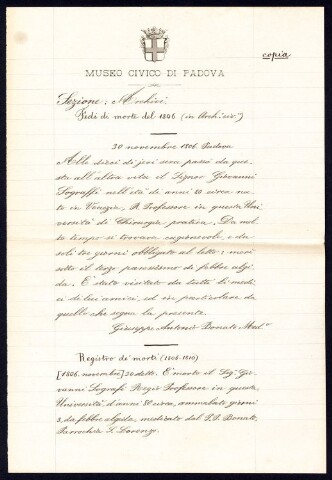 copia
MUSEO CIVICO DI PADOVA
Sezione: Archivi
Fedi di morte del 1806 (in Archivio)
30 novembre 1806 Padova
Alle dieci di jeri sera passò da que-
sta all'altra vita il Signor Giovanni
Sografi nell'età di anni 80 circa na-
to in Venezia, R. Professore in questa Uni-
versità di Chirurgia pratica. Da mol-
to tempo si trovava cagionevole, e da
soli tre giorni obbligato al letto: morì
sotto il terzo parosismo di febbre algi-
da. È stato visitato da tutti li medi-
ci di lui amici, ed in particolare da
quello che segna la presente.
Giuseppe Antonio Bonato Med.
Registro dei morti (1806-1810)
[1806, novembre] 30 detto. È morto il Sig. Gio-
vanni Sografi Regio Professore in questa
Università, d'anni 80 circa, ammalato giorni
3, da febbre algida, medicato dal Bonato,
Parrochia S. Lorenzo.